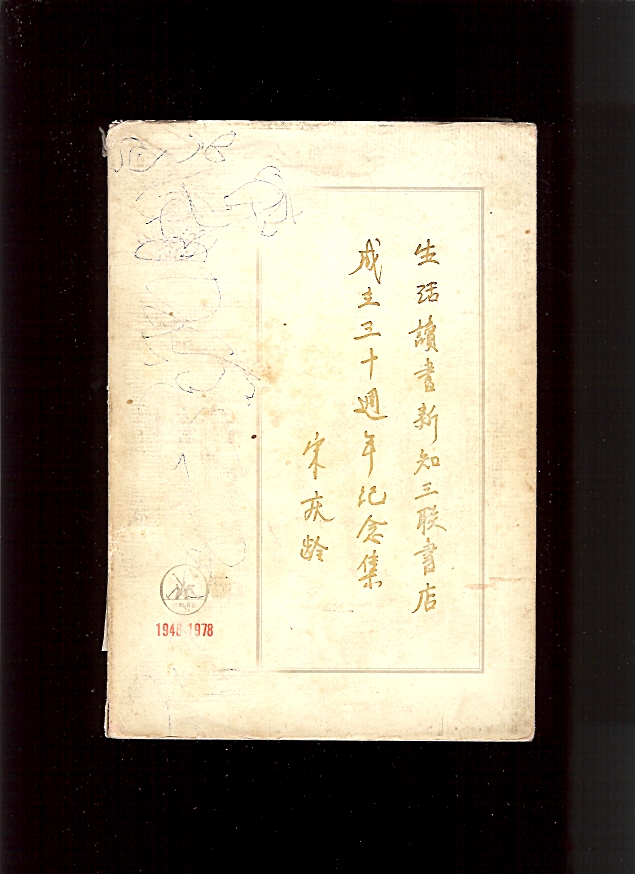 生活讀書新知三联書店
成立三十週年纪念集
宋庆龄
1948-1978